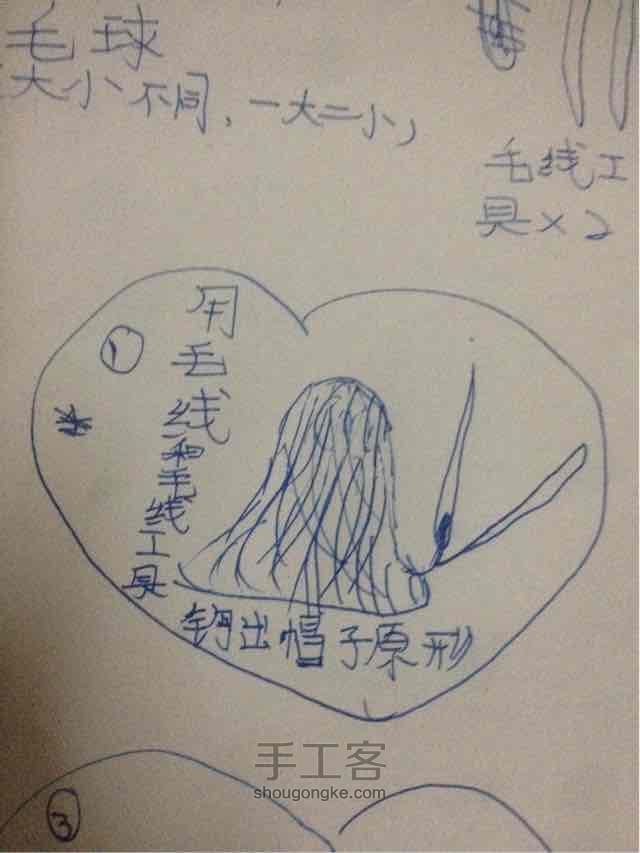 毛球
大小不同，一大二小，
毛线工
具×2
①
用毛线和毛线工具
钩出帽子原形
手工客
shougongke.com
③